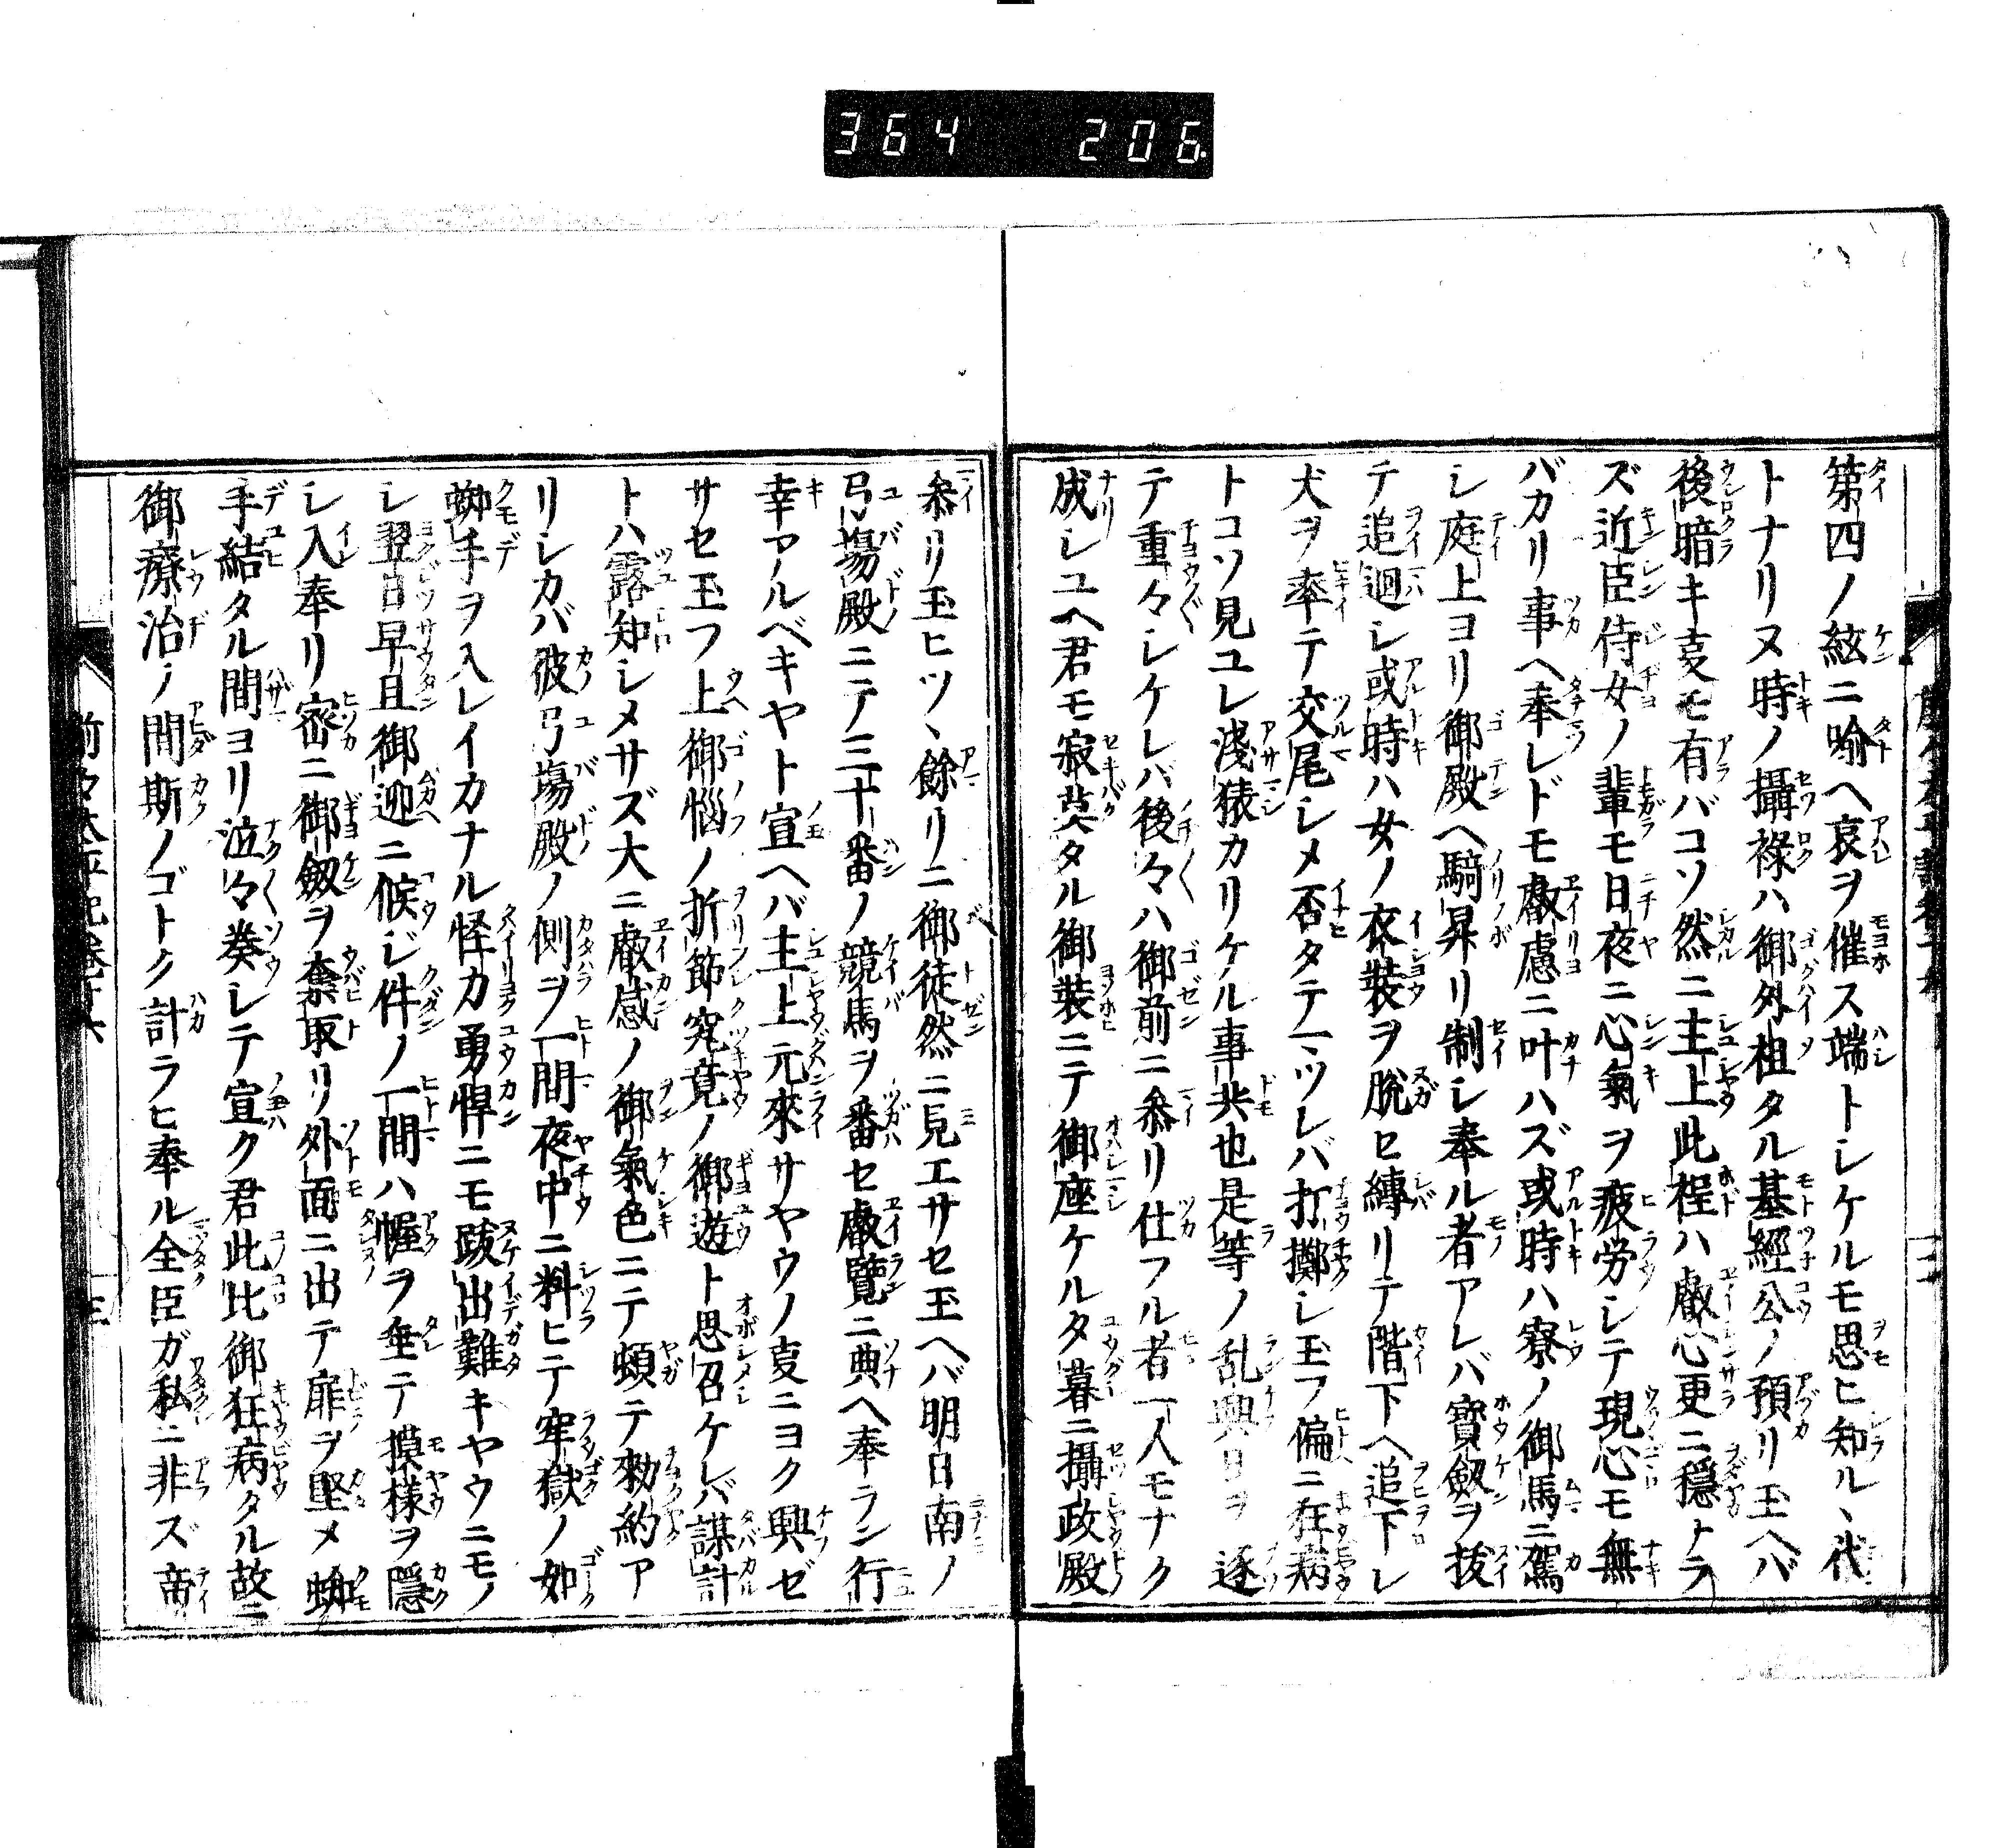 364 206
第四ノ絃ニ喩ヘ哀ヲ催ス端トシケルモ思ヒ知ル、代
トナリヌ時ノ攝祿ハ御外祖タル基經公ノ預リ玉ヘバ
後暗キ夏モ有バコソ然ニ主上此程ハ叡心更ニ穩トラ
ズ近臣侍女ノ輩モ日夜ニ心氣ヲ疲労シテ現心モ無
バカリ事ヘ奉レドモ叡慮ニ叶ハズ或時ハ寮ノ御馬ニ駕
シ庭上ヨリ御殿ヘ騎昇リ制シ奉ル者アレバ寶劔ヲ抜
テ追廻シ或時ハ女ノ衣裝ヲ脱セ縛リテ階下ヘ追下シ
犬ヲ率テ交尾シメ否タテマツレバ打擲シ玉フ偏ニ狂病
トコソ見ユレ淺猿カリケル事共也是等ノ乱興日ヲ逐
テ重々シケレバ後々ハ御前ニ叅リ仕フル者一人モナク
成シユヘ君モ寂莫タル御裝ニテ御座ケルタ暮ニ攝政殿
叅リ玉ヒツヽ餘リニ御徒然ニ見エサセ玉ヘバ明日南ノ
弓塲殿ニテ三十番ノ競馬ヲ番セ叡覽ニ典ヘ奉ラン行
幸アルベキヤト宣ヘバ主上元來サヤウノ夏ニヨク興ゼ
サセ玉フ上御惱ノ折節究竟ノ御遊ト思召ケレバ謀計
トハ露知シメサズ大ニ叡感ノ御氣色ニテ頓テ勅約ア
リシカバ彼弓塲殿ノ側ヲ一間夜中ニ料ヒテ牢獄ノ如
蜘手ヲ入レイカナル怪力勇悍ニモ跋出難キヤウニモノ
シ翌日早旦御迎ニ候シ件ノ一間ハ幄ヲ垂テ摸樣ヲ隱
シ入奉リ宻ニ御劔ヲ奪取リ外面ニ出テ扉ヲ堅メ蜘
手結タル間ヨリ泣々奏シテ宣ク君此比御狂病タル故ニ
御療治ノ間斯ノゴトク計ラヒ奉ル全臣ガ私ニ非ズ帝